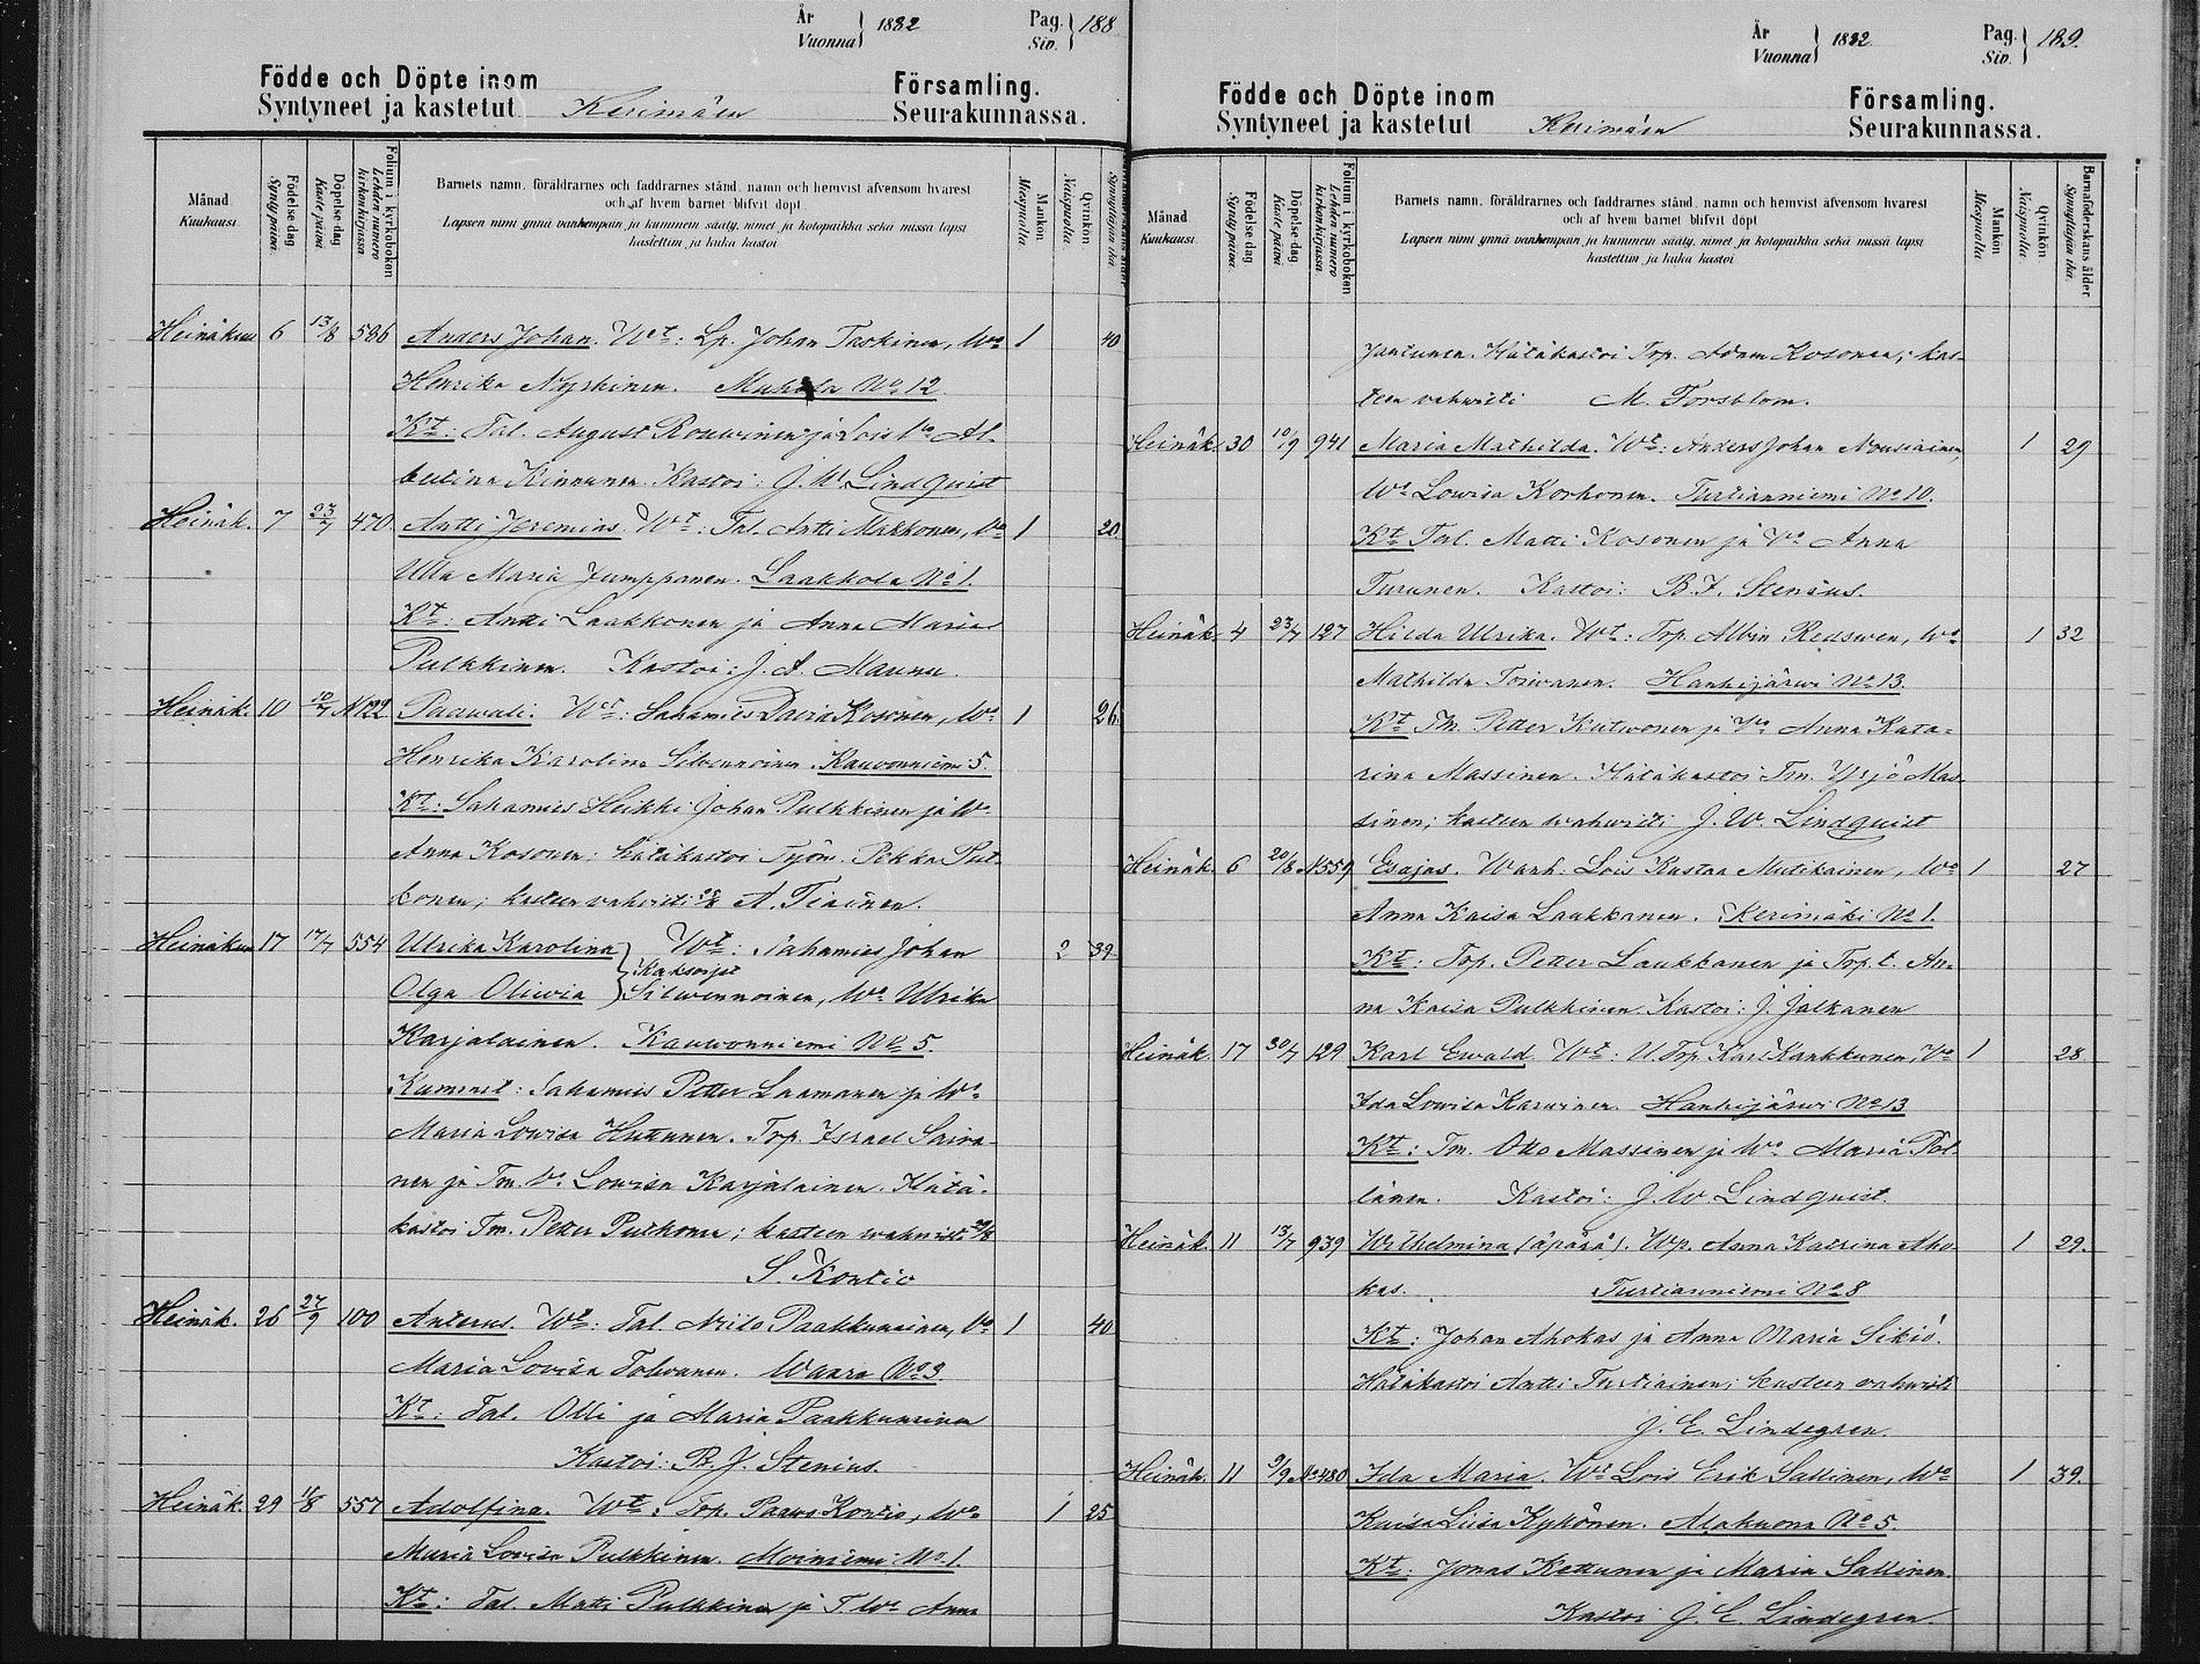 År
Vuonna 1882 Pag. Siv. 188
Födde och Döpte inom Församling.
Syntyneet ja kastetut Kerimäen Seurakunnassa.
Månad Kuukausi. Födelse dag Synty päivä. Döpelse dag Kaste päivä. Folium i kyrkoboken Lehden numero kirkonkirjassa Barnets namn, föräldrarnes och faddrarnes stånd, namn och hemvist äfvensom hvarest Mankön Miespuolta Qvinkön Naispuolta.
och af hvem barnet blifvit döpt
Lapsen nimi ynnä vanhempain ja kummein sääty, nimet ja kotopaikka sekä missä lapsi
kastettiin ja kuka kastoi
Heinäkuu 6 13/8 586 Anders Johan. Wet: Lp. Johan Taskinen, Wo 1 40
Henrika Nyrkinen. Muhola No 12
Kt: Tal. August Rouwinen ja Lois Wo Al-
bertina Kinnunen. Kastoi: J. W. Lindquist
Heinäk. 7 23/7 470 Antti Jeremias. Wt: Tal. Antti Makkonen, Vo 1 20.
Ulla Maria Jumppanen. Laakkola No 1.
Kt: Antti Laakkonen ja Anna Maria
Pulkkinen. Kastoi: J. A. Maunu.
Heinäk. 10 10/7 N 122 Paawali. Wet: Sahamies David Kosonen, Wo 1 26.
Henrika Karolina Silvennoinen. Kauvonniemi 5.
Kt: Sahamies Heikki Johan Pulkkinen ja Wo
Anna Kosonen; hätäkastoi Työm. Pekka Put-
konen; kasteen vahvisti 28/8 A. Tiainen.
Heinäkuu 17 17/7 554 Ulrika Karolina Wt: Sahamies Johan 2 39
Kaksoiset
Olga Oliwia Silwennoinen, Wo Ulrika
Karjalainen. Kauwonniemi No 5.
Kummit: Sahamies Petter Laamanen ja Wo
Maria Lowisa Huttunen. Trp. Israel Saira-
nen ja Tm. V. Lowisa Karjalainen. Hätä-
kastoi Tm. Petter Putkonen; kasteen wahwisti 20/8
S. Kontio
Heinäk. 26 27/9 100 Anterus. Wt: Tal. Niilo Paakkunainen, Vo 1 40
Maria Lovisa Tolwanen. Waara No 3.
Kt: Tal. Olli ja Maria Paakkunainen
Kastoi: B. J. Stenius.
Heinäk. 29 11/8 557 Adolfina. Wt: Trp. Paawo Kontio, Wo 1 25
Maria Lovisa Pulkkinen. Moiniemi No 1.
Kt: Tal. Matti Pulkkinen ja T. Wo Anna
År
Vuonna 1882. Pag. Siv. 189.
Födde och Döpte inom Församling.
Syntyneet ja kastetut Kerimäen Seurakunnassa.
Månad Kuukausi. Födelse dag Synty päivä. Döpelse dag Kaste päivä. Folium i kyrkoboken Lehden numero kirkonkirjassa. Barnets namn, föräldrarnes och faddrarnes stånd, namn och hemvist äfvensom hvarest Mankön Miespuolta Qvinkön Naispuolta Barnaföderskans ålder Synnyttäjän ikä.
och af hvem barnet blifvit döpt
Lapsen nimi ynnä vanhempain ja kummein sääty, nimet ja kotopaikka sekä missä lapsi
kastettiin ja kuka kastoi
Jantunen. Hätäkastoi Trp. Adam Kosonen; kas-
teen vahwisti M. Forsblom.
Heinäk. 30 10/9 941 Maria Mathilda. Wt: Anders Johan Nousiainen, 1 29
Wo Lowisa Korhonen. Turtianniemi No 10.
Kt Tal. Matti Kosonen ja Vo Anna
Turunen. Kastoi: B. J. Stenius.
Heinäk. 4 23/7 127 Hilda Ulrika. Wt: Trp. Albin Redswen, Wo 1 32
Mathilda Toiwanen. Hanhijärwi No 13.
Kt Tm. Petter Kutwonen ja Vo Anna Kata-
rina Massinen. Hätäkastoi Tm. Yrjö Mas-
sinen; kasteen wahwisti J. W. Lindquist
Heinäk. 6 20/8 N 559 Esajas. Wanh: Lois Kustaa Mutikainen, Wo 1 27
Anna Kaisa Laukkanen. Kerimäki No 1.
Kt: Trp. Petter Laukkanen ja Trp. t. An-
na Kaisa Pulkkinen. Kastoi: J. Jalkanen
Heinäk. 17 30/7 129 Karl Ewald. Wt: U. Trp. Karl Kankkunen, Vo 1 28.
Ida Lowisa Karwinen. Hanhijärwi No 13
Kt: Tm. Otto Massinen ja Wo Maria Pöl-
länen. Kastoi: J. W. Lindquist.
Heinäk. 11 13/7 939 Wilhelmina (äpärä). Wp. Anna Katrina Aho- 1 29.
kas. Turtianniemi No 8
Kt: Johan Ahokas ja Anna Maria Sikiö.
Hätäkastoi Antti Turtiainen; kasteen vahwisti
J. E. Lindegren.
Heinäk. 11 9/9 No 480 Ida Maria. Wt Lois Erik Sallinen, Wo 1 39.
Kaisa Liisa Kykönen. Alakuona No 5.
Kt: Jonas Kettunen ja Maria Sallinen.
Kastoi J. E. Lindegren.